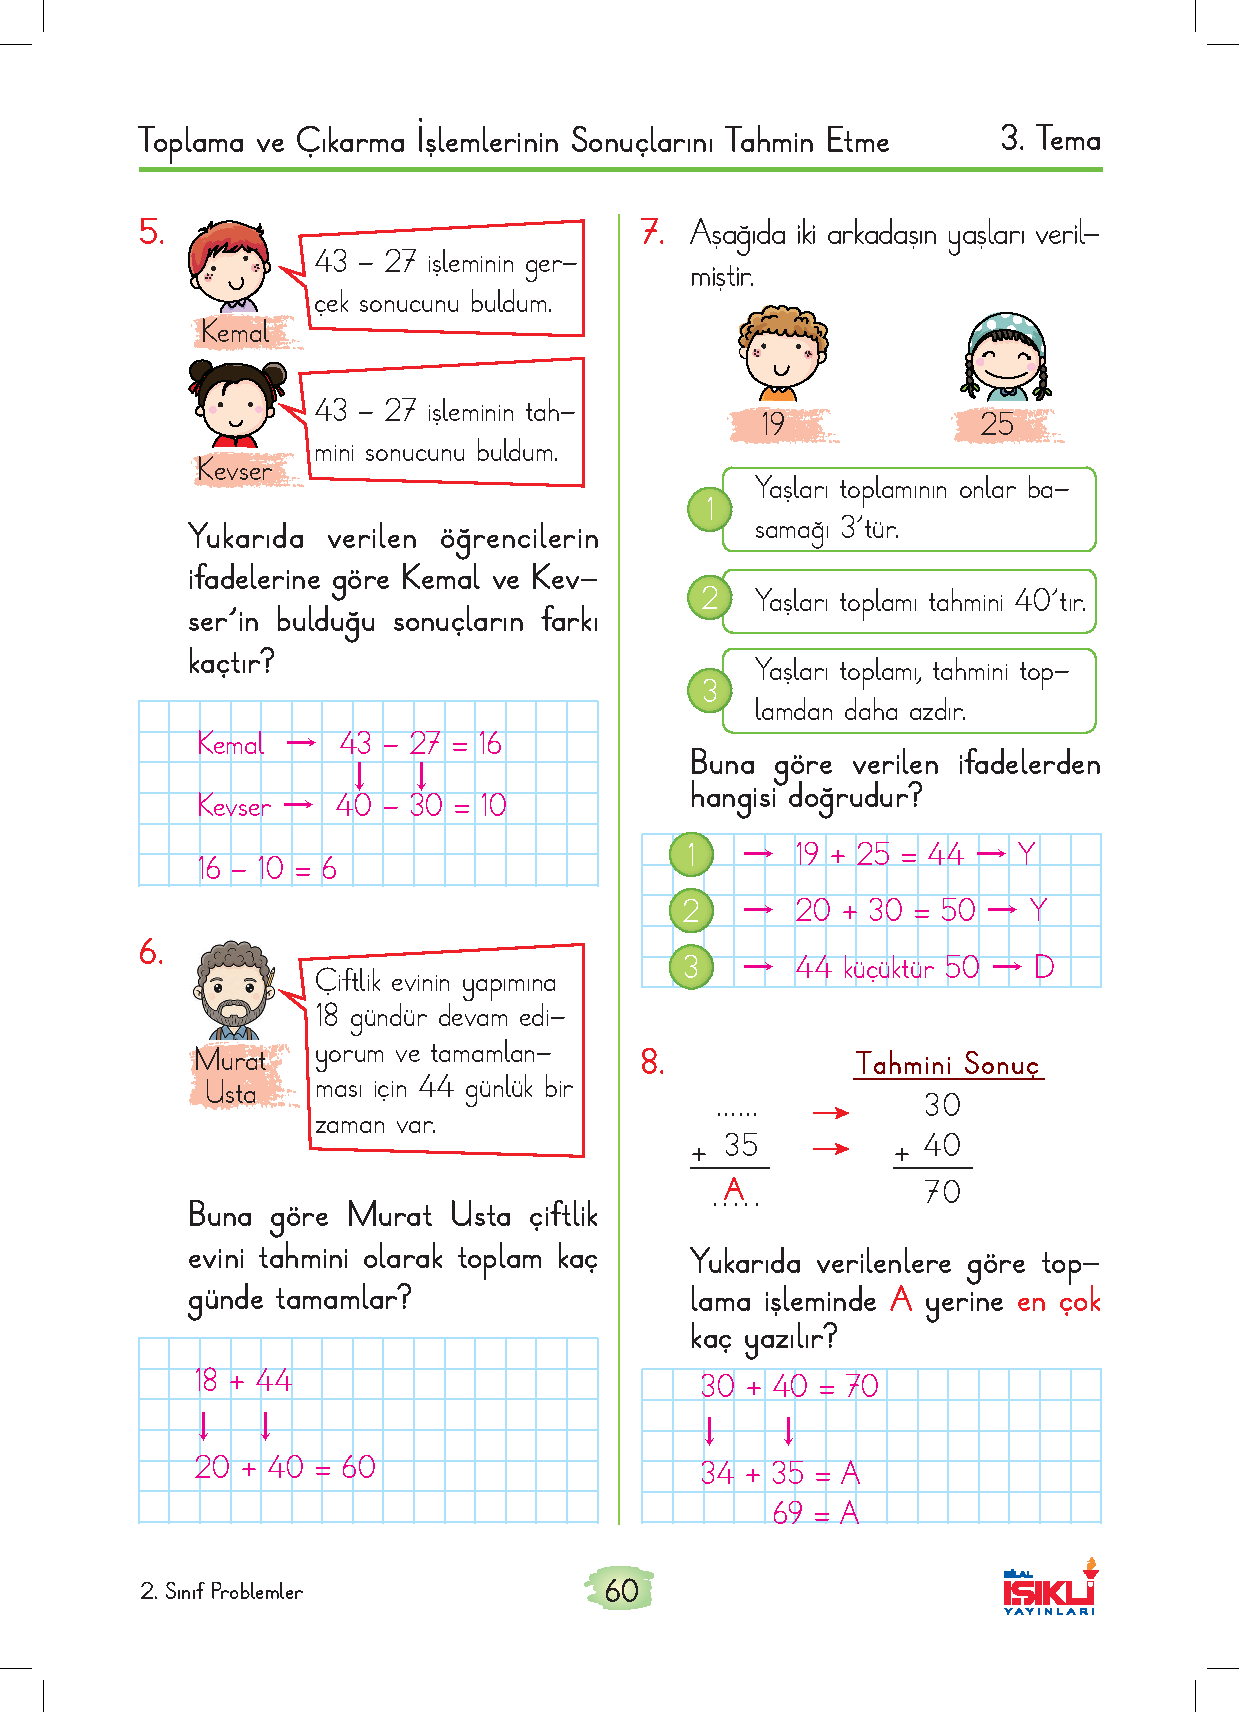 Toplama ve Çıkarma İşlemlerinin Sonuçlarını Tahmin Etme
3. Tema
5.
43 – 27 işleminin ger–
çek sonucunu buldum.
Kemal
43 – 27 işleminin tah–
mini sonucunu buldum.
Kevser
Yukarıda verilen öğrencilerin
ifadelerine göre Kemal ve Kev–
ser’in bulduğu sonuçların farkı
kaçtır?
Kemal → 43 – 27 = 16
↓ ↓
Kevser → 40 – 30 = 10
16 – 10 = 6
6.
Çiftlik evinin yapımına
18 gündür devam edi–
yorum ve tamamlan–
ması için 44 günlük bir
zaman var.
Murat
Usta
Buna göre Murat Usta çiftlik
evini tahmini olarak toplam kaç
günde tamamlar?
18 + 44
↓ ↓
20 + 40 = 60
7. Aşağıda iki arkadaşın yaşları veril–
miştir.
19 25
1 Yaşları toplamının onlar ba–
samağı 3’tür.
2 Yaşları toplamı tahmini 40’tır.
3 Yaşları toplamı, tahmini top–
lamdan daha azdır.
Buna göre verilen ifadelerden
hangisi doğrudur?
1 → 19 + 25 = 44 → Y
2 → 20 + 30 = 50 → Y
3 → 44 küçüktür 50 → D
8. Tahmini Sonuç
...... → 30
+ 35 → + 40
..A.. 70
Yukarıda verilenlere göre top–
lama işleminde A yerine en çok
kaç yazılır?
30 + 40 = 70
↓ ↓
34 + 35 = A
69 = A
2. Sınıf Problemler
60
BİLAL
IŞIKLI
YAYINLARI